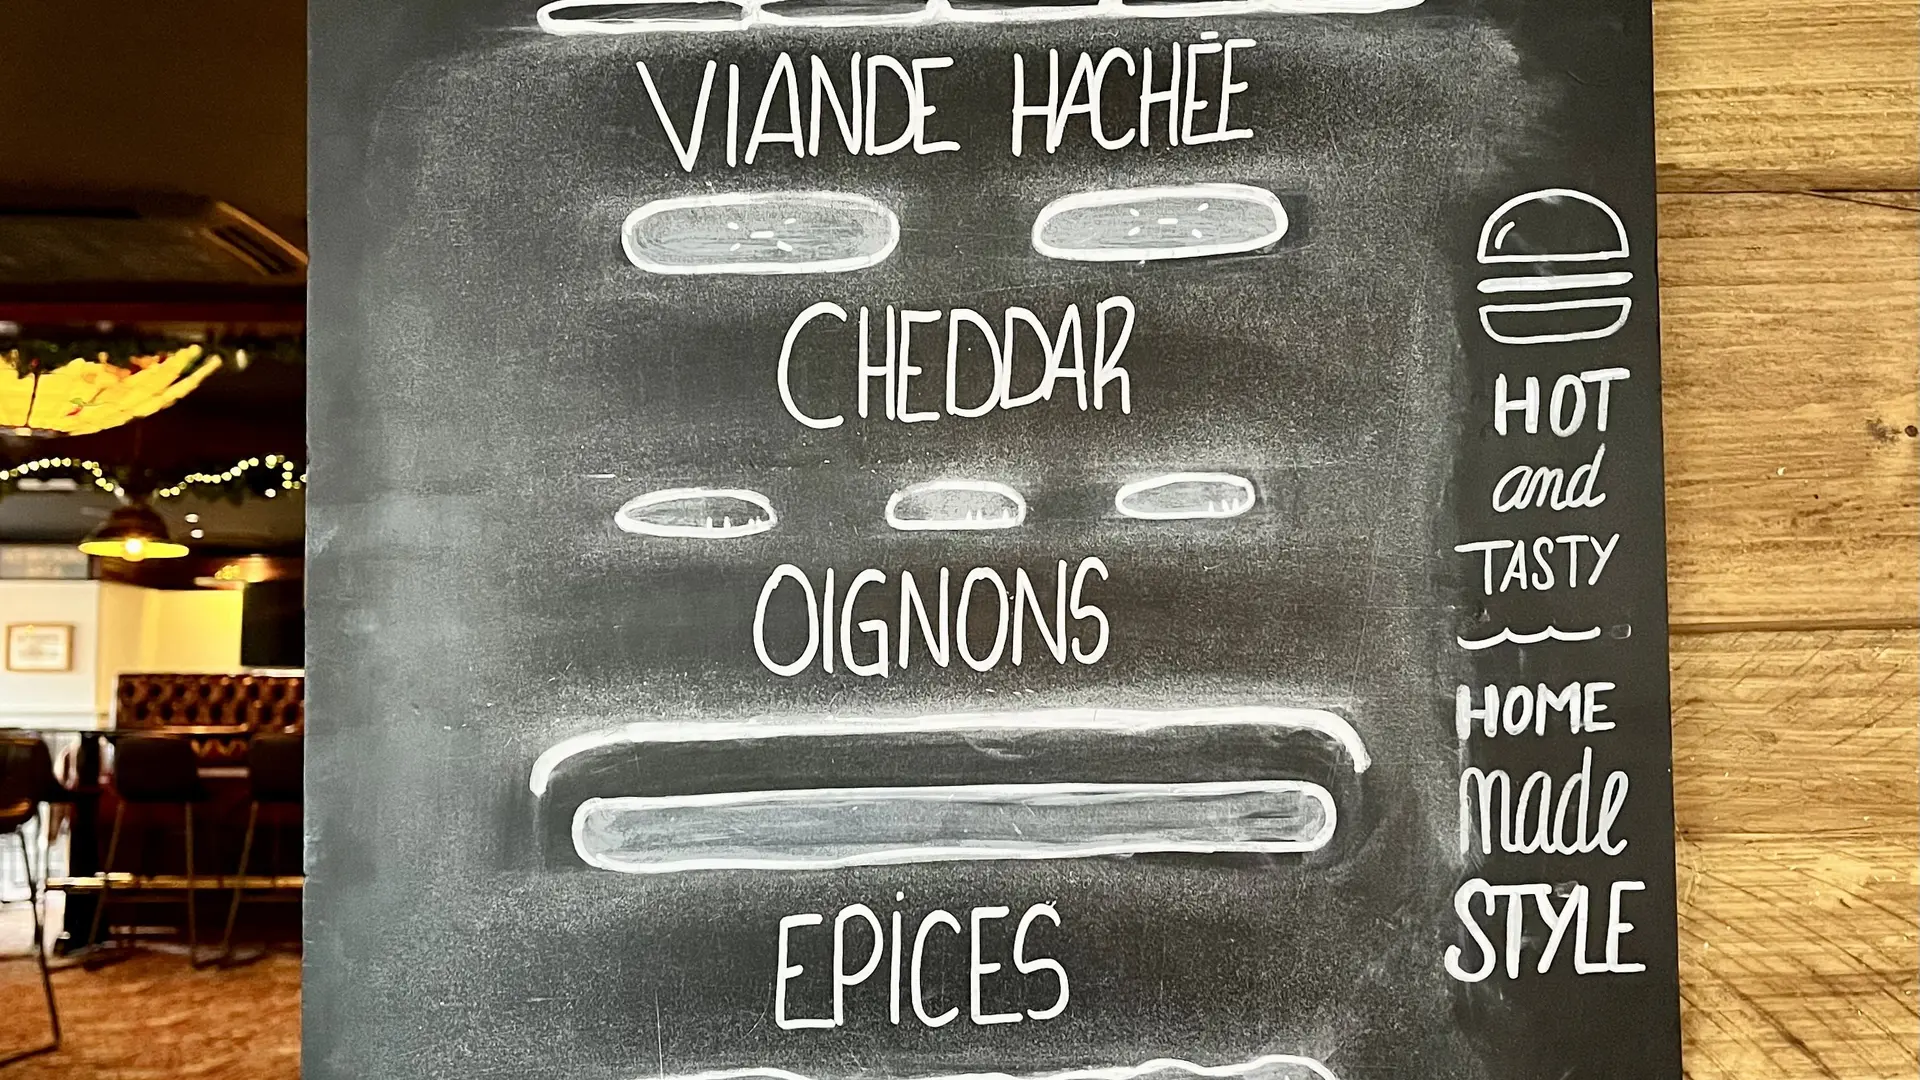 VIANDE HACHÉE
CHEDDAR
OIGNONS
EPiCES
HOT
and
TASTY
HOME
made
STYLE